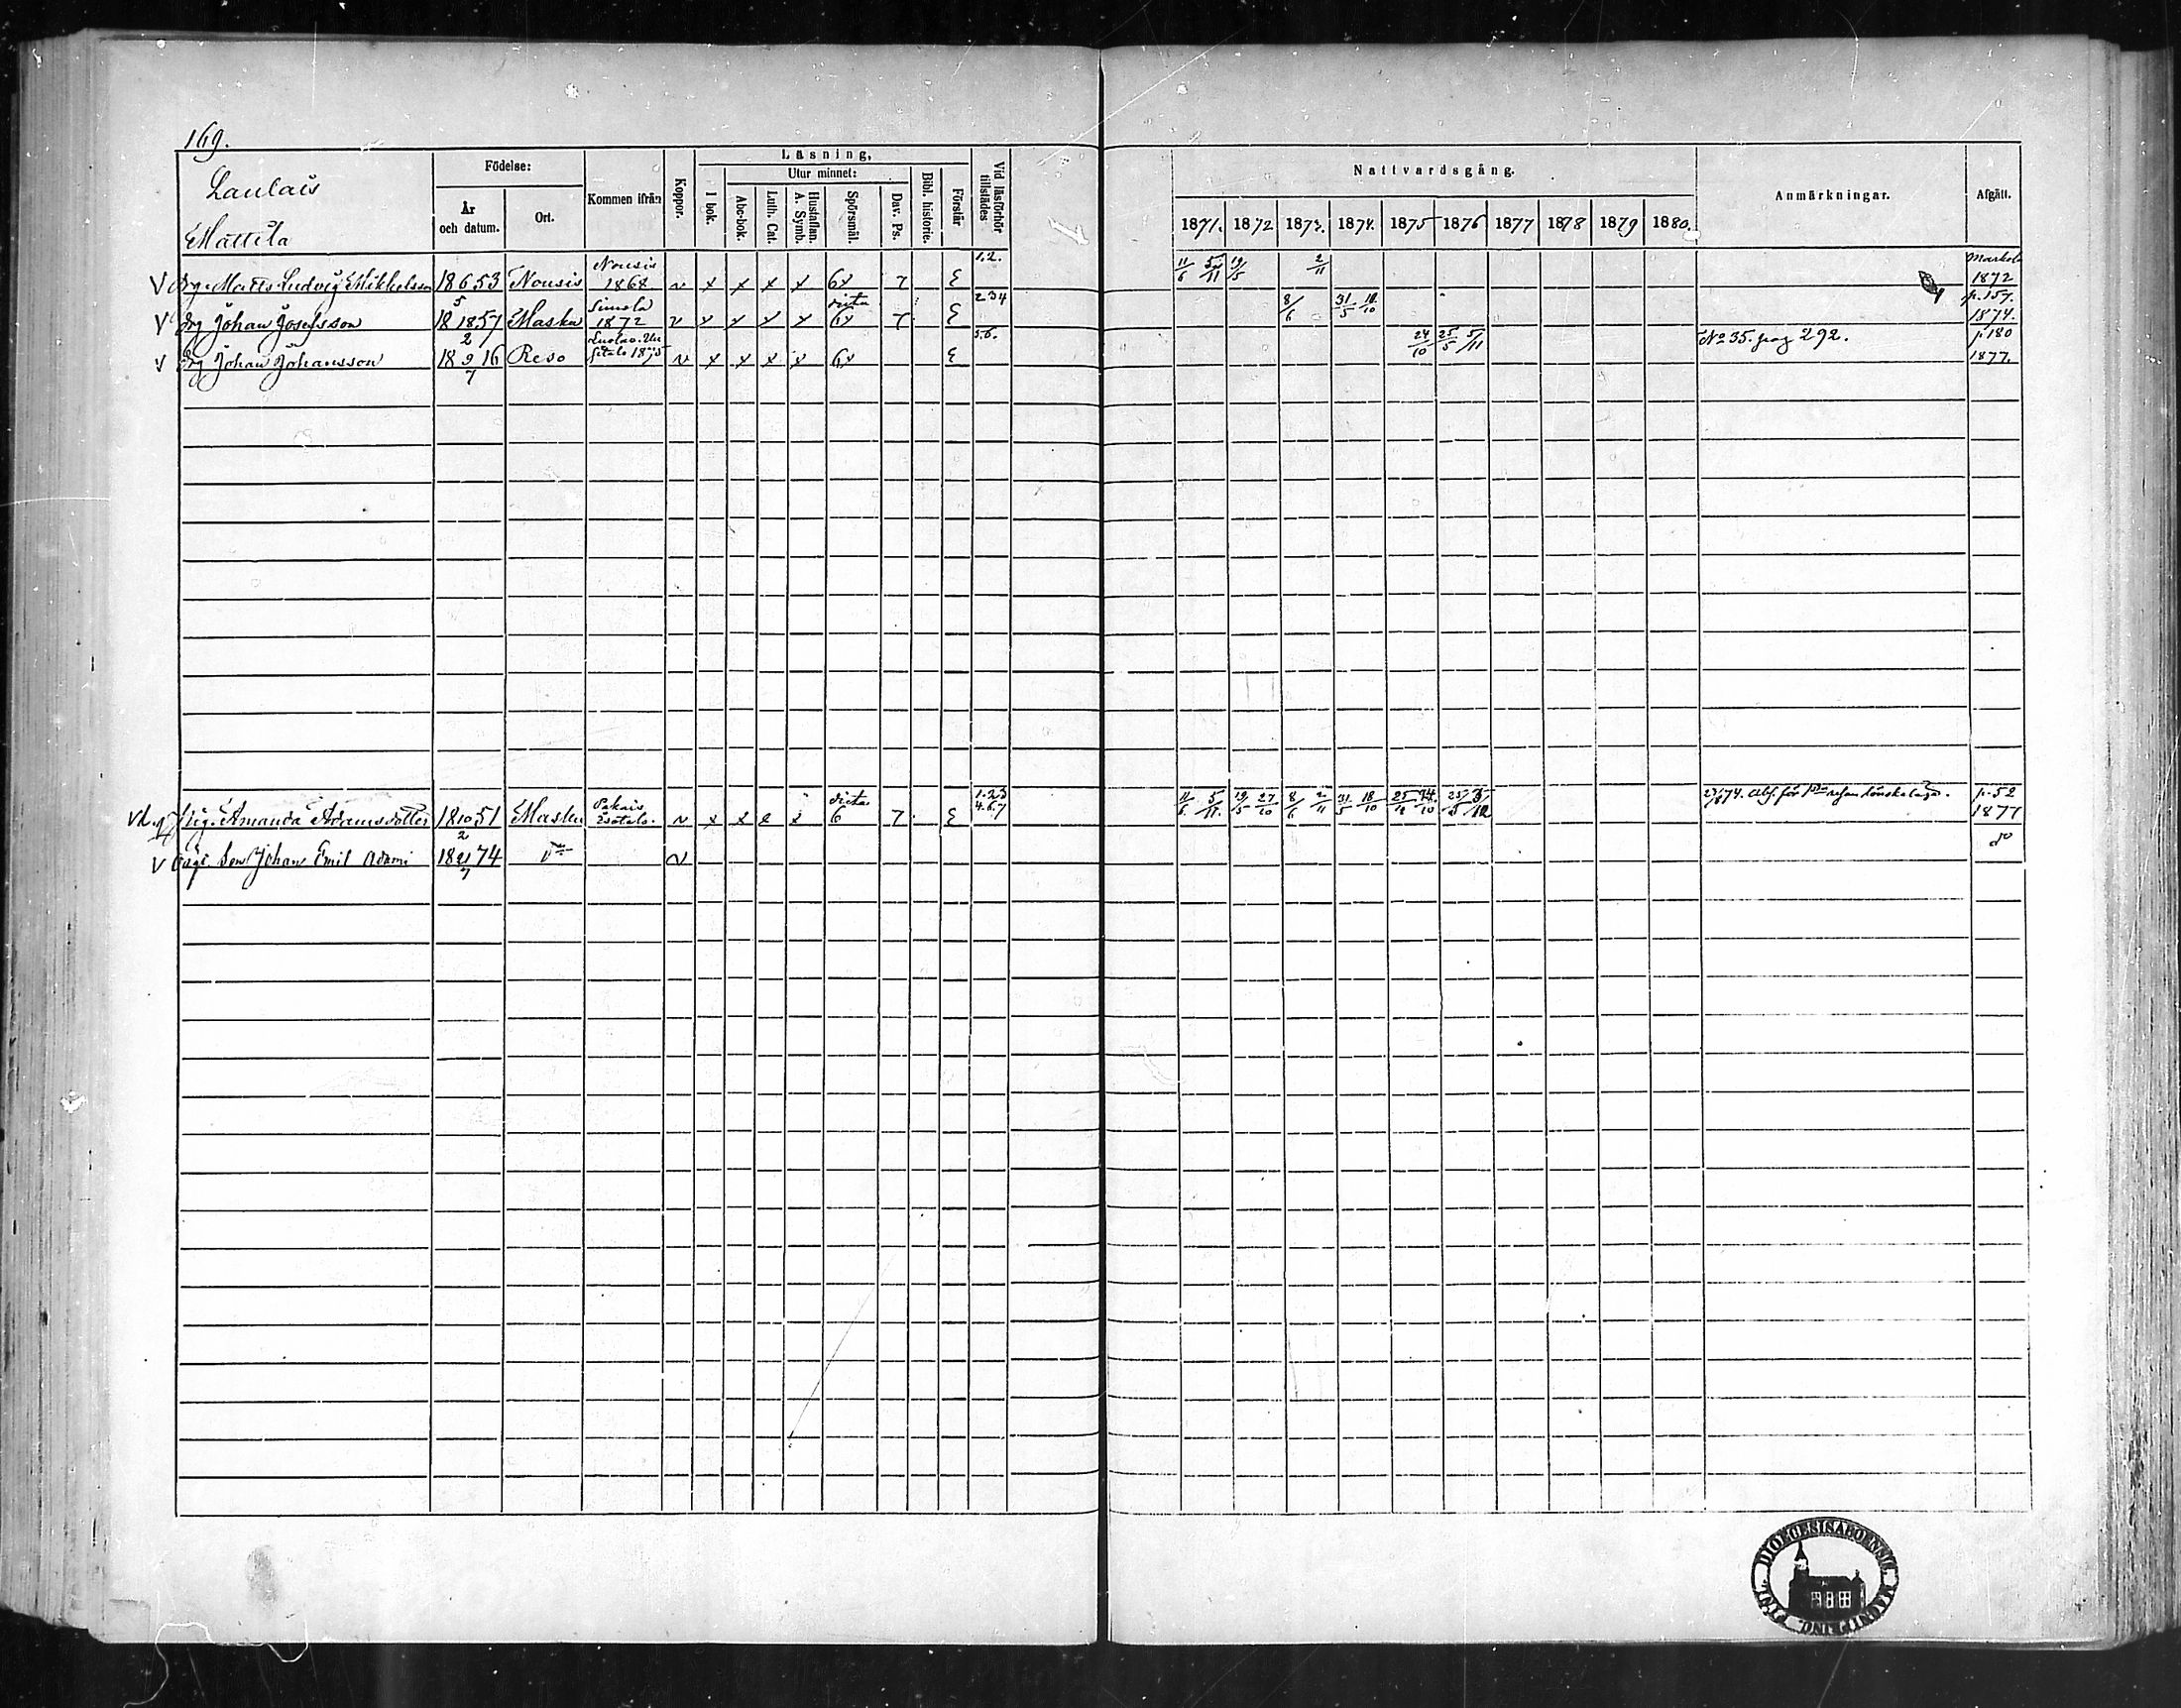 169.
Laulais
Mattila
Födelse:
År och datum.
Ort.
Kommen ifrån
Koppor.
Läsning,
I bok.
Utur minnet:
Abc-bok.
Luth. Cat.
Hustaflan. A. Symb.
Spörsmål.
Dav. Ps.
Bibl. historie.
Förstår
Vid läsförhör tillstädes
Nattvardsgång.
1871. 1872 1873. 1874. 1875 1876 1877 1878 1879 1880.
Anmärkningar.
Afgått.
V Drg. Matts Ludvig Mikkelsson 18 6/5 53 Nousis Nousis 1868 x x x x 6x 7 1.2. 11/6 5/11 19/5 2/11 1872
V Drg Johan Josefsson 18 18/2 57 Masku Simola 1872 x x x x dicta 6x 7 2 3 4 8/6 31/5 18/10 p. 157. 1874.
V Drg Johan Johansson 18 9/7 16 Reso 1875 x x x x 6x 5.6. 24/10 25/5 5/11 No 35. pag 292. p. 180 1877.
Pig. Amanda Adamsdotter 18 10/2 51 Masku Pakais x dicta 6 7 1.2.3 4.6.7 11/6 5/11 19/5 27/10 8/6 2/11 31/5 18/10 p. 52 1877
V Oägt. Son Johan Emil Adami 18 21/7 74 do
FINL. DIOECESIS ABOENSIS MAGNI PRINC.